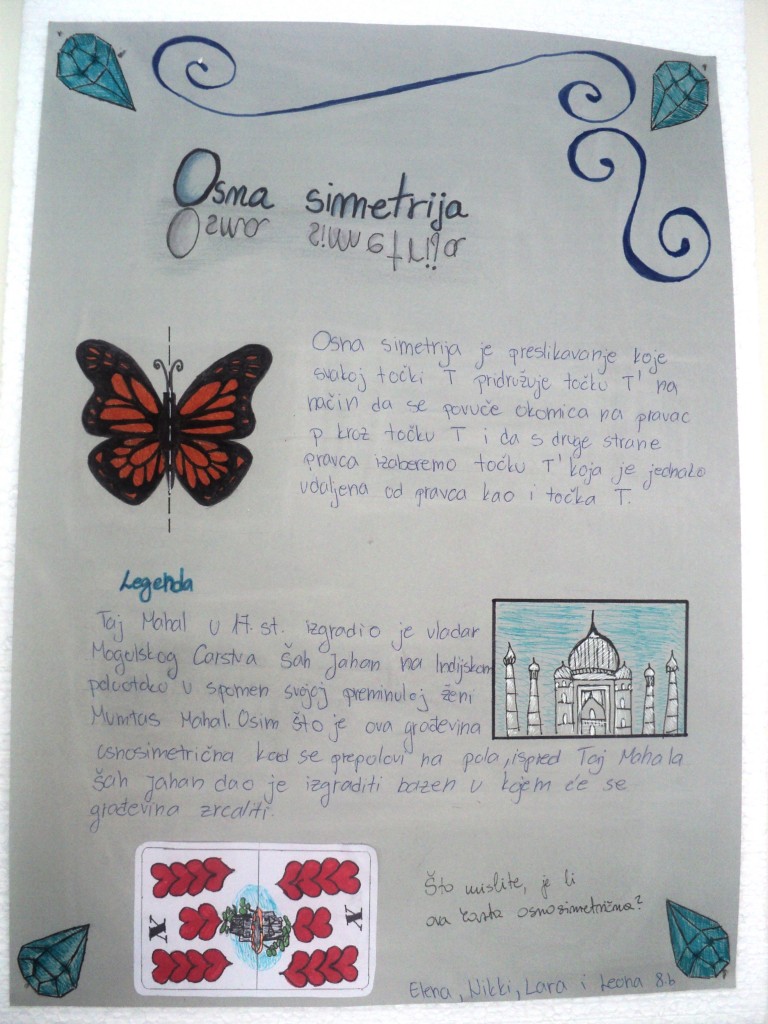 Osna simetrija
Osna simetrija
Osna simetrija je preslikavanje koje
svakoj točki T pridružuje točku T' na
način da se povuče okomica na pravac
p kroz točku T i da s druge strane
pravca izaberemo točku T' koja je jednako
udaljena od pravca kao i točka T.
Legenda
Taj Mahal u 17. st. izgradio je vladar
Mogulskog Carstva Šah Jahan na Indijskom
poluotoku u spomen svojoj preminuloj ženi
Mumtas Mahal. Osim što je ova građevina
osnosimetrična kad se prepolovi na pola, ispred Taj Mahala
Šah Jahan dao je izgraditi bazen u kojem će se
građevina zrcaliti.
X X
Što mislite, je li
ova karta osnosimetrična?
Elena, Nikki, Lara i Leona 8.b